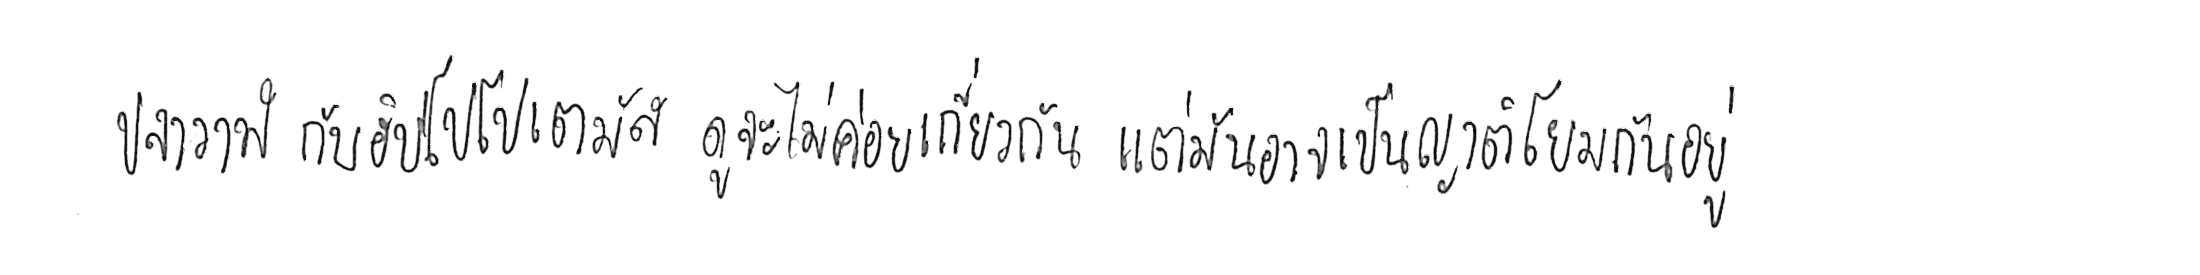 ปลาวาฬ กับฮิปโปโปเตามัส ดูจะไม่ค่อยเกี่ยวกัน แต่มันอาจเป็นญาติโยมกันอยู่